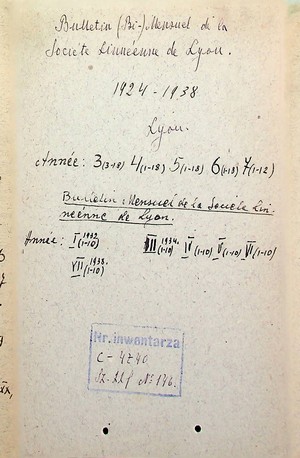 Bulletin (Bi-) Mensuel de la
Societe Linnéenne de Lyon.
1924 - 1938
Lyon.
Année: 3(3-18) 4(1-18) 5(1-18) 6(1-18) 7(1-12)
Bulletin Mensuel de la Societe Lin-
néenne de Lyon.
Année: I 1932. (1-10) III 1934. (1-10) IV (1-10) V (1-10) VI (1-10)
VII 1938. (1-10)
Nr. inwentarza
C - 4740
№ 146.